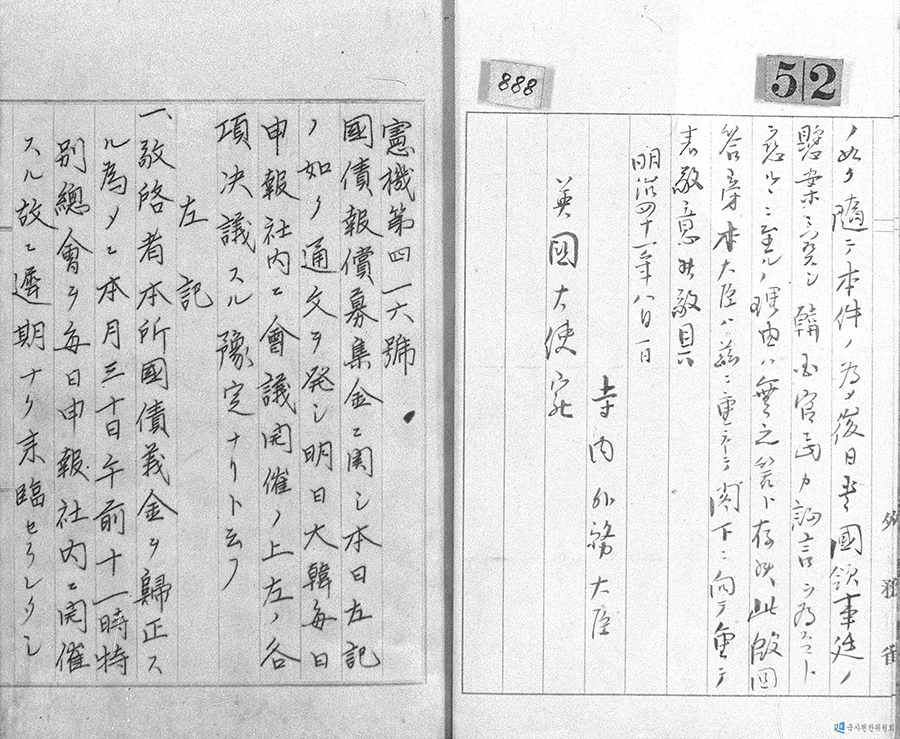 52
888
ノ如ク隨テ本件ノ為メ後日貴國領事廷ノ
懸案ニ関シ韓国官民カ証言ヲ為スコト
ニ至ルノ理由ハ無之筈ト存候此段回
答旁本大臣ハ茲ニ重テ閣下ニ向テ重テ
表敬意候敬具
明治四十一年八月一日
寺内外務大臣
英國大使宛
憲機第四一六號
國債報償募集金ニ関シ本日左記
ノ如ク通文ヲ発シ明日大韓每日
申報社内ニ會議開催ノ上左ノ各
項決議スル豫定ナリト云フ
左記
一、敬啓者本所國債義金ヲ歸正ス
ル為メニ本月三十日午前十一時特
別總會ヲ每日申報社内ニ開催
スル故ニ遲期ナリ来臨セラレタシ
外務省
국사편찬위원회